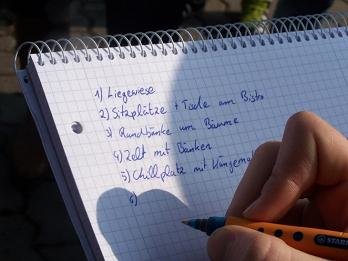 1) Liegewiese
2) Sitzplätze + Tische am Bistro
3) Rundbänke um Bäume
4) Zelt mit Bänken
5) Chillplatz mit
6)
STAB